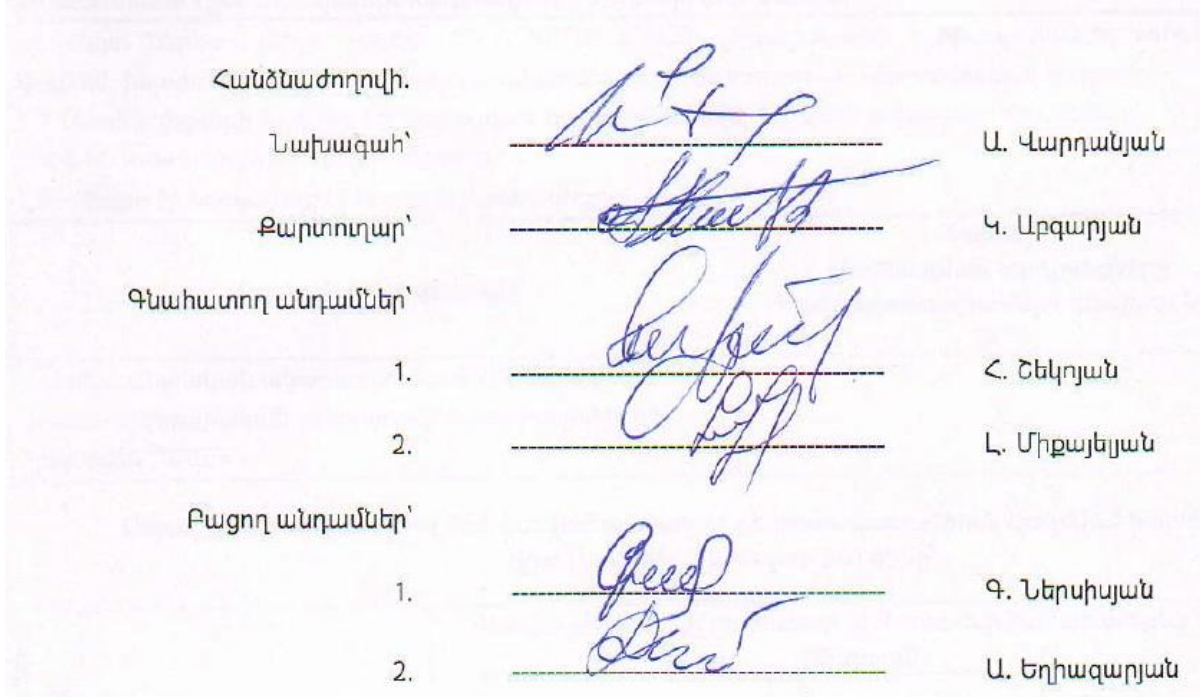 Հանձնաժողովի.
Նախագահ՝ Ա. Վարդանյան
Քարտուղար՝ Կ. Աբգարյան
Գնահատող անդամներ՝
1. Հ. Շեկոյան
2. Լ. Միքայելյան
Բացող անդամներ՝
1. Գ. Ներսիսյան
2. Ա. Եղիազարյան